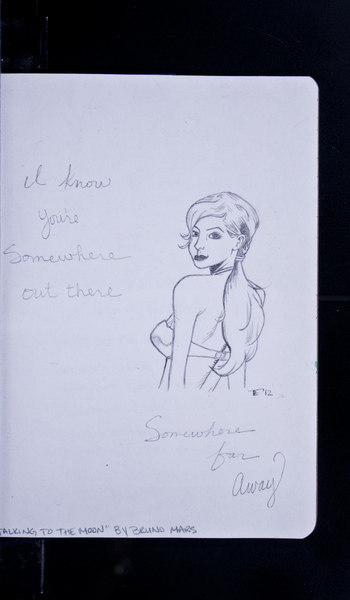 I know
you're
Somewhere
out there
TE '12
Somewhere
far
away
"TALKING TO THE MOON" BY BRUNO MARS